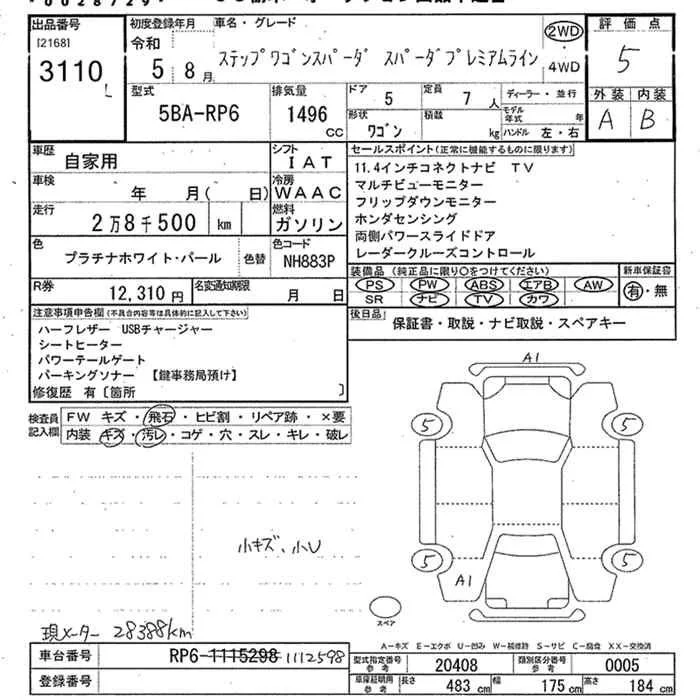 *0028729*
出品番号
[2168]
3110
L
初度登録年月
令和
5 8月
車名・グレード
ステップワゴンスパーダ スパーダプレミアムライン
2WD
・
4WD
評価点
5
外装 内装
A B
型式
5BA-RP6
排気量
1496
CC
ドア 5
定員 7人
形状 ワゴン
積載 kg
ディーラー・並行
モデル年式 年
ハンドル 左・右
車歴 自家用
シフト IAT
車検 年 月( 日)
冷房 WAAC
走行 2万8千500 km
燃料 ガソリン
色 プラチナホワイト・パール
色替
色コード NH883P
R券 12,310円
名変通知期限 月 日
セールスポイント(正常に機能するものに限ります)
11.4インチコネクトナビ TV
マルチビューモニター
フリップダウンモニター
ホンダセンシング
両側パワースライドドア
レーダークルーズコントロール
装備品(純正品に限り○をつけてください)
PS PW ABS エアB AW
SR ナビ TV カワ
新車保証書
有・無
後日品
保証書・取説・ナビ取説・スペアキー
注意事項申告欄(不具合内容等は具体的に記入して下さい)
ハーフレザー USBチャージャー
シートヒーター
パワーテールゲート
パーキングソナー 【鍵事務局預け】
修復歴 有〔箇所 〕
検査員記入欄
FW キズ・飛石・ヒビ割・リペア跡・×要
内装 キズ・汚レ・コゲ・穴・スレ・キレ・破レ
小キズ、小U
A1
5
5
5
5
A1
スペア
現メーター 28388km
A-キズ E-エクボ U-凹み W-補修跡 S-サビ C-腐食 XX-交換済
車台番号 RP6-1115298 1112598
登録番号
型式指定番号参考 20408
類別区分番号参考 0005
車庫証明用参考 長さ 483 cm 幅 175 cm 高さ 184 cm